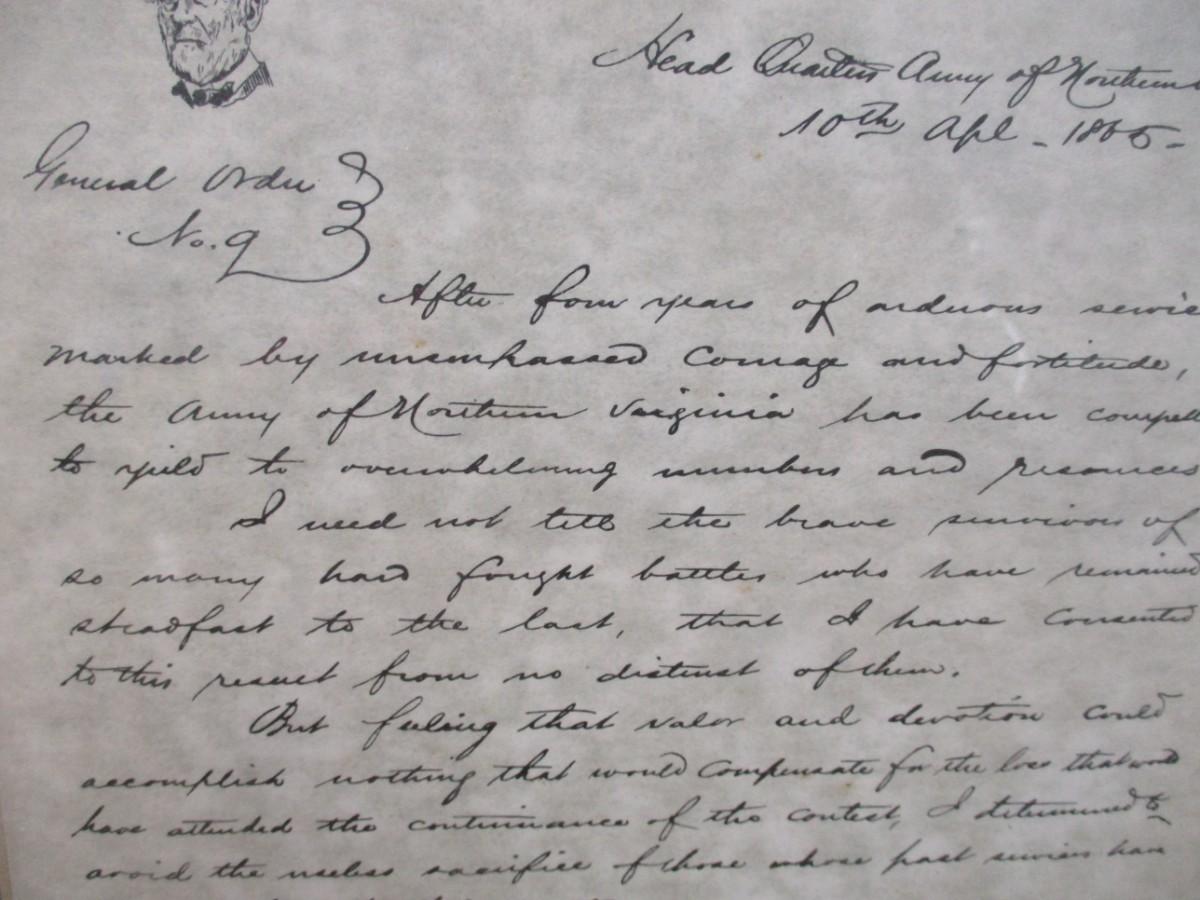 Head Quarters Army of Northern
10th Apl - 1865 -
General Order
No. 9
After four years of arduous servic
marked by unsurpassed Courage and fortitude,
the Army of Northern Virginia has been compell
to yield to overwhelming numbers and resources
I need not tell the brave survivors of
so many hard fought battles who have remained
steadfast to the last, that I have Consented
to this result from no distrust of them.
But feeling that valor and devotion could
accomplish nothing that would Compensate for the loss that would
have attended the continuance of the contest, I determined to
avoid the useless sacrifice of those whose past services have